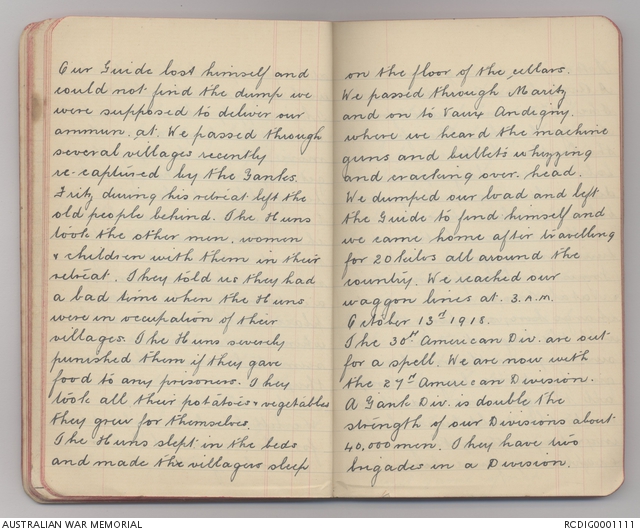 Our Guide lost himself and
could not find the dump we
were supposed to deliver our
ammun. at. We passed through
several villages recently
re-captured by the Yanks.
Fritz during his retreat left the
old people behind. The Huns
took the other men, women
& children with them in their
retreat. They told us they had
a bad time when the Huns
were in occupation of their
villages. The Huns severely
punished them if they gave
food to any prisoners. They
took all their potatoes & vegetables
they grew for themselves.
The Huns slept in the beds
and made the villagers sleep
on the floor of the cellars.
We passed through Marity
and on to Vaux Andigny.
where we heard the machine
guns and bullets whizzing
and cracking over head.
We dumped our load and left
the Guide to find himself and
we came home after travelling
for 20 kilos all around the
country. We reached our
waggon lines at 3. A.M.
October 13th 1918.
The 30th American Div. are out
for a spell. We are now with
the 27th American Division.
A Yank Div. is double the
strength of our Divisions about
40,000 men. They have two
brigades in a Division.
AUSTRALIAN WAR MEMORIAL
RCDIG0001111